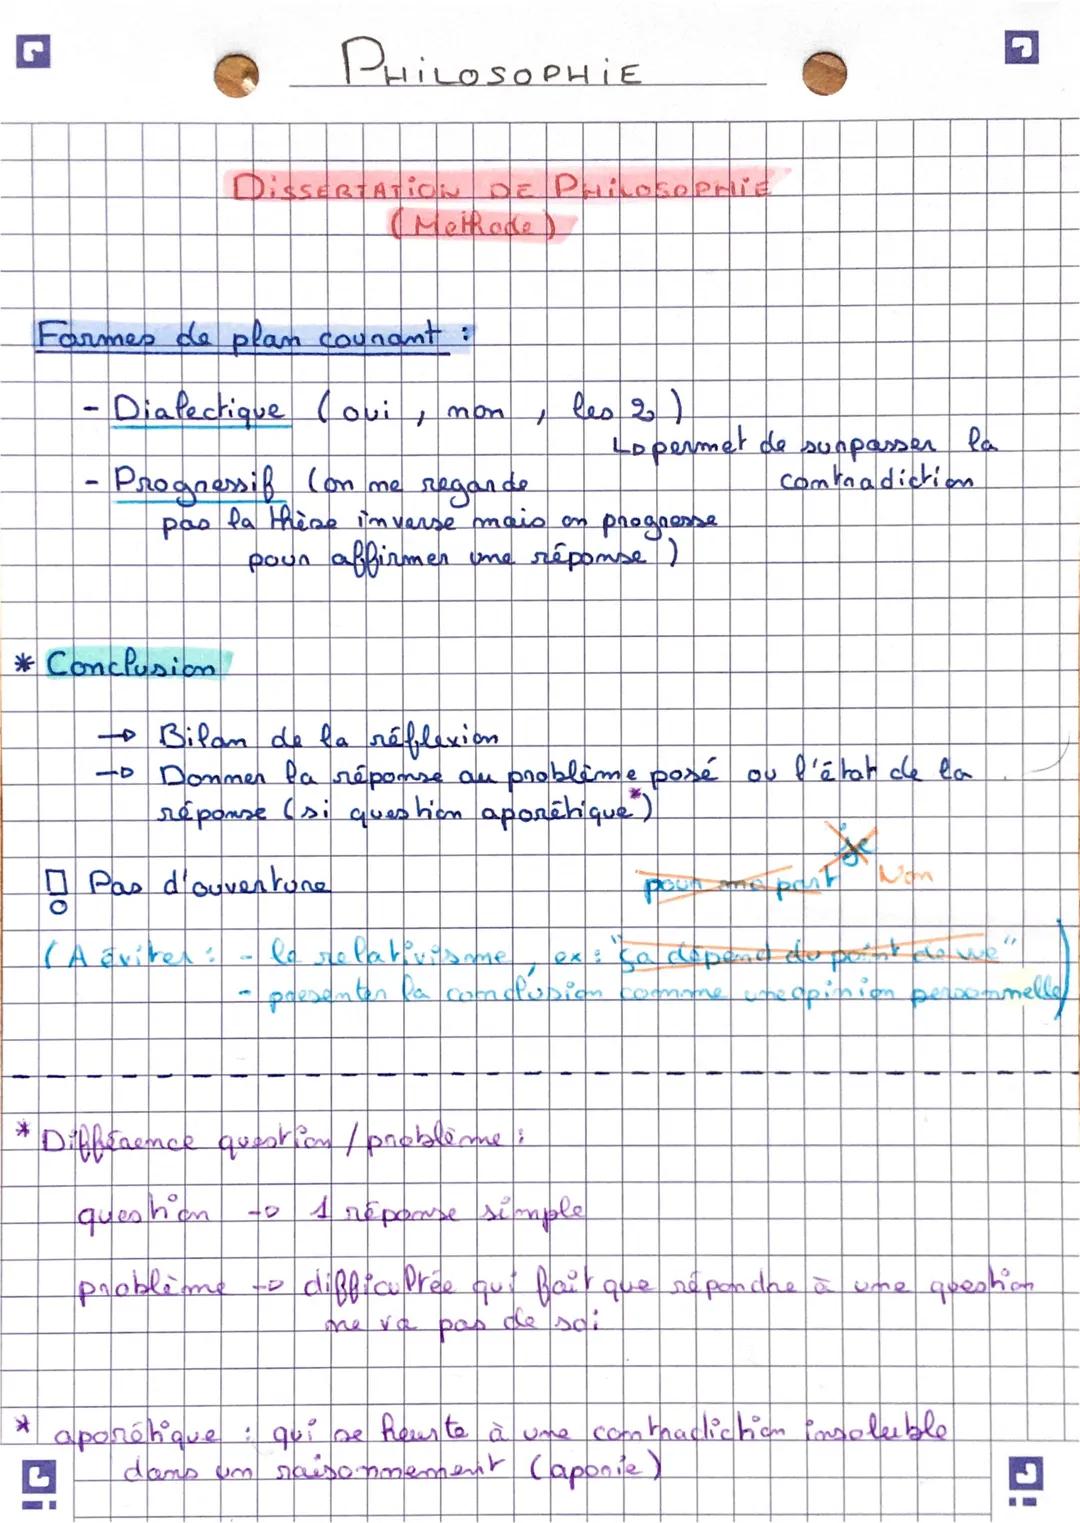 PHiLOSOPHiE
DiSSERTATiON DE PHiLOSOPHiE
(Méthode)
Formes de plan courant :
- Dialectique (oui, non, les 2)
↳ permet de surpasser la
contradiction
- Progressif (on ne regarde
pas la thèse inverse mais on progresse
pour affirmer une réponse)
* Conclusion
→ Bilan de la réflexion
→ Donner la réponse au problème posé ou l'état de la
réponse (si question aporétique*)
! Pas d'ouverture
pour ma part je Non
(A éviter : - le relativisme, ex : "ça dépend du point de vue"
- présenter la conclusion comme une opinion personnelle)
* Différence question / problème :
question → 1 réponse simple
problème → difficultée qui fait que répondre à une question
ne va pas de soi
* aporétique : qui se heurte à une contradiction insoluble
dans un raisonnement (aporie)